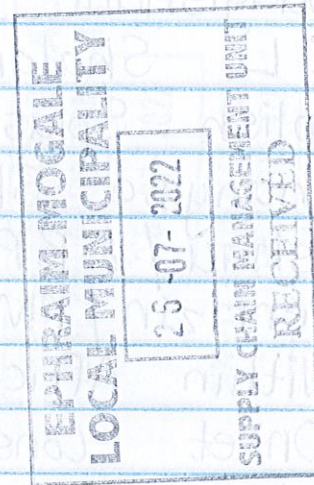 EPHRAIM MOGALE
LOCAL MUNICIPALITY
25 -07- 2022
SUPPLY CHAIN MANAGEMENT UNIT
RECEIVED